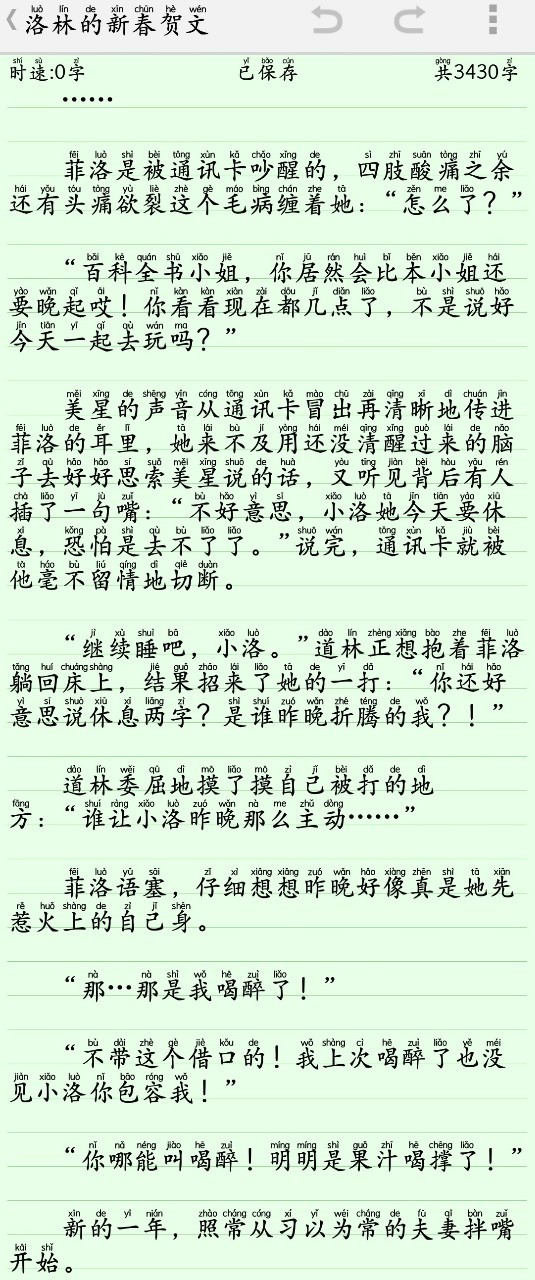 洛林的新春贺文
时速:0字 已保存 共3430字
……
菲洛是被通讯卡吵醒的，四肢酸痛之余
还有头痛欲裂这个毛病缠着她：“怎么了？”
“百科全书小姐，你居然会比本小姐还
要晚起哎！你看看现在都几点了，不是说好
今天一起去玩吗？”
美星的声音从通讯卡冒出再清晰地传进
菲洛的耳里，她来不及用还没清醒过来的脑
子去好好思索美星说的话，又听见背后有人
插了一句嘴：“不好意思，小洛她今天要休
息，恐怕是去不了了。”说完，通讯卡就被
他毫不留情地切断。
“继续睡吧，小洛。”道林正想抱着菲洛
躺回床上，结果招来了她的一打：“你还好
意思说休息两字？是谁昨晚折腾的我？！”
道林委屈地摸了摸自己被打的地
方：“谁让小洛昨晚那么主动……”
菲洛语塞，仔细想想昨晚好像真是她先
惹火上的自己身。
“那…那是我喝醉了！”
“不带这个借口的！我上次喝醉了也没
见小洛你包容我！”
“你哪能叫喝醉！明明是果汁喝撑了！”
新的一年，照常从习以为常的夫妻拌嘴
开始。